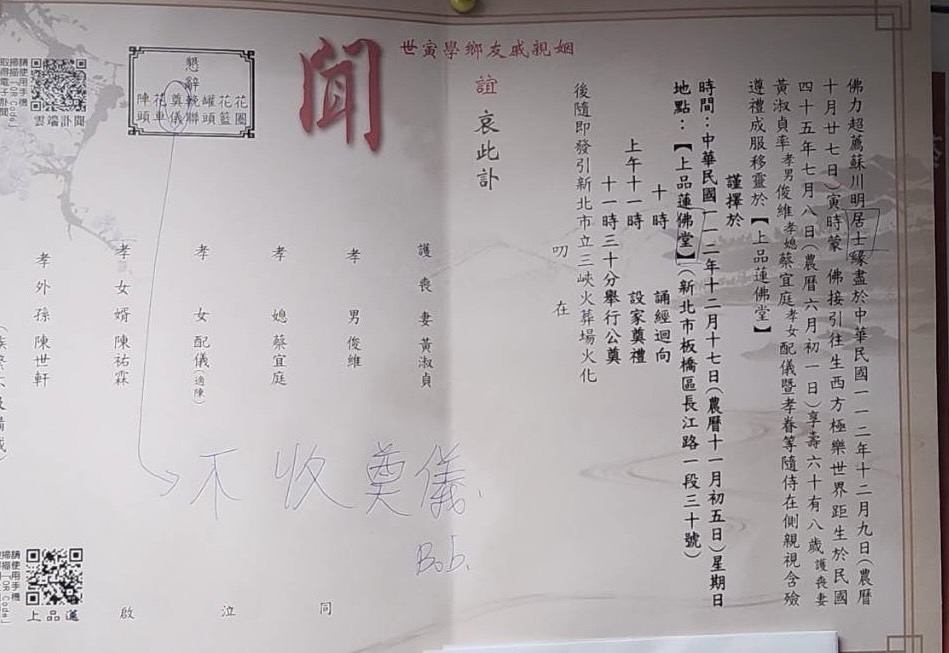 佛力超薦蘇川明居士緣盡於中華民國一一二年十二月九日(農曆
十月廿七日)寅時蒙 佛接引往生西方極樂世界距生於民國
四十五年七月八日(農曆六月初一日)享壽六十有八歲護喪妻
黃淑貞率孝男俊維孝媳蔡宜庭孝女配儀暨孝眷等隨侍在側親視含殮
遵禮成服移靈於【上品蓮佛堂】
謹擇於
時間：中華民國一一二年十二月十七日(農曆十一月初五日)星期日
地點：【上品蓮佛堂】(新北市板橋區長江路一段三十號)
十時 誦經迴向
上午十一時 設家奠禮
十一時三十分舉行公奠
後隨即發引新北市立三峽火葬場火化
叨在
姻親戚友鄉學寅世
誼 哀此訃
聞
護喪妻黃淑貞
孝男俊維
孝媳蔡宜庭
孝女配儀(適陳)
孝女婿陳祐霖
孝外孫陳世軒
同泣啟
懇辭
花圈
花籃
罐頭
輓聯
奠儀
花車
陣頭
不收奠儀
Bob.
請使用手機
掃描「QR Code」
取得電子訃聞
雲端訃聞
請使用手機
掃描「QR Code」
上品蓮